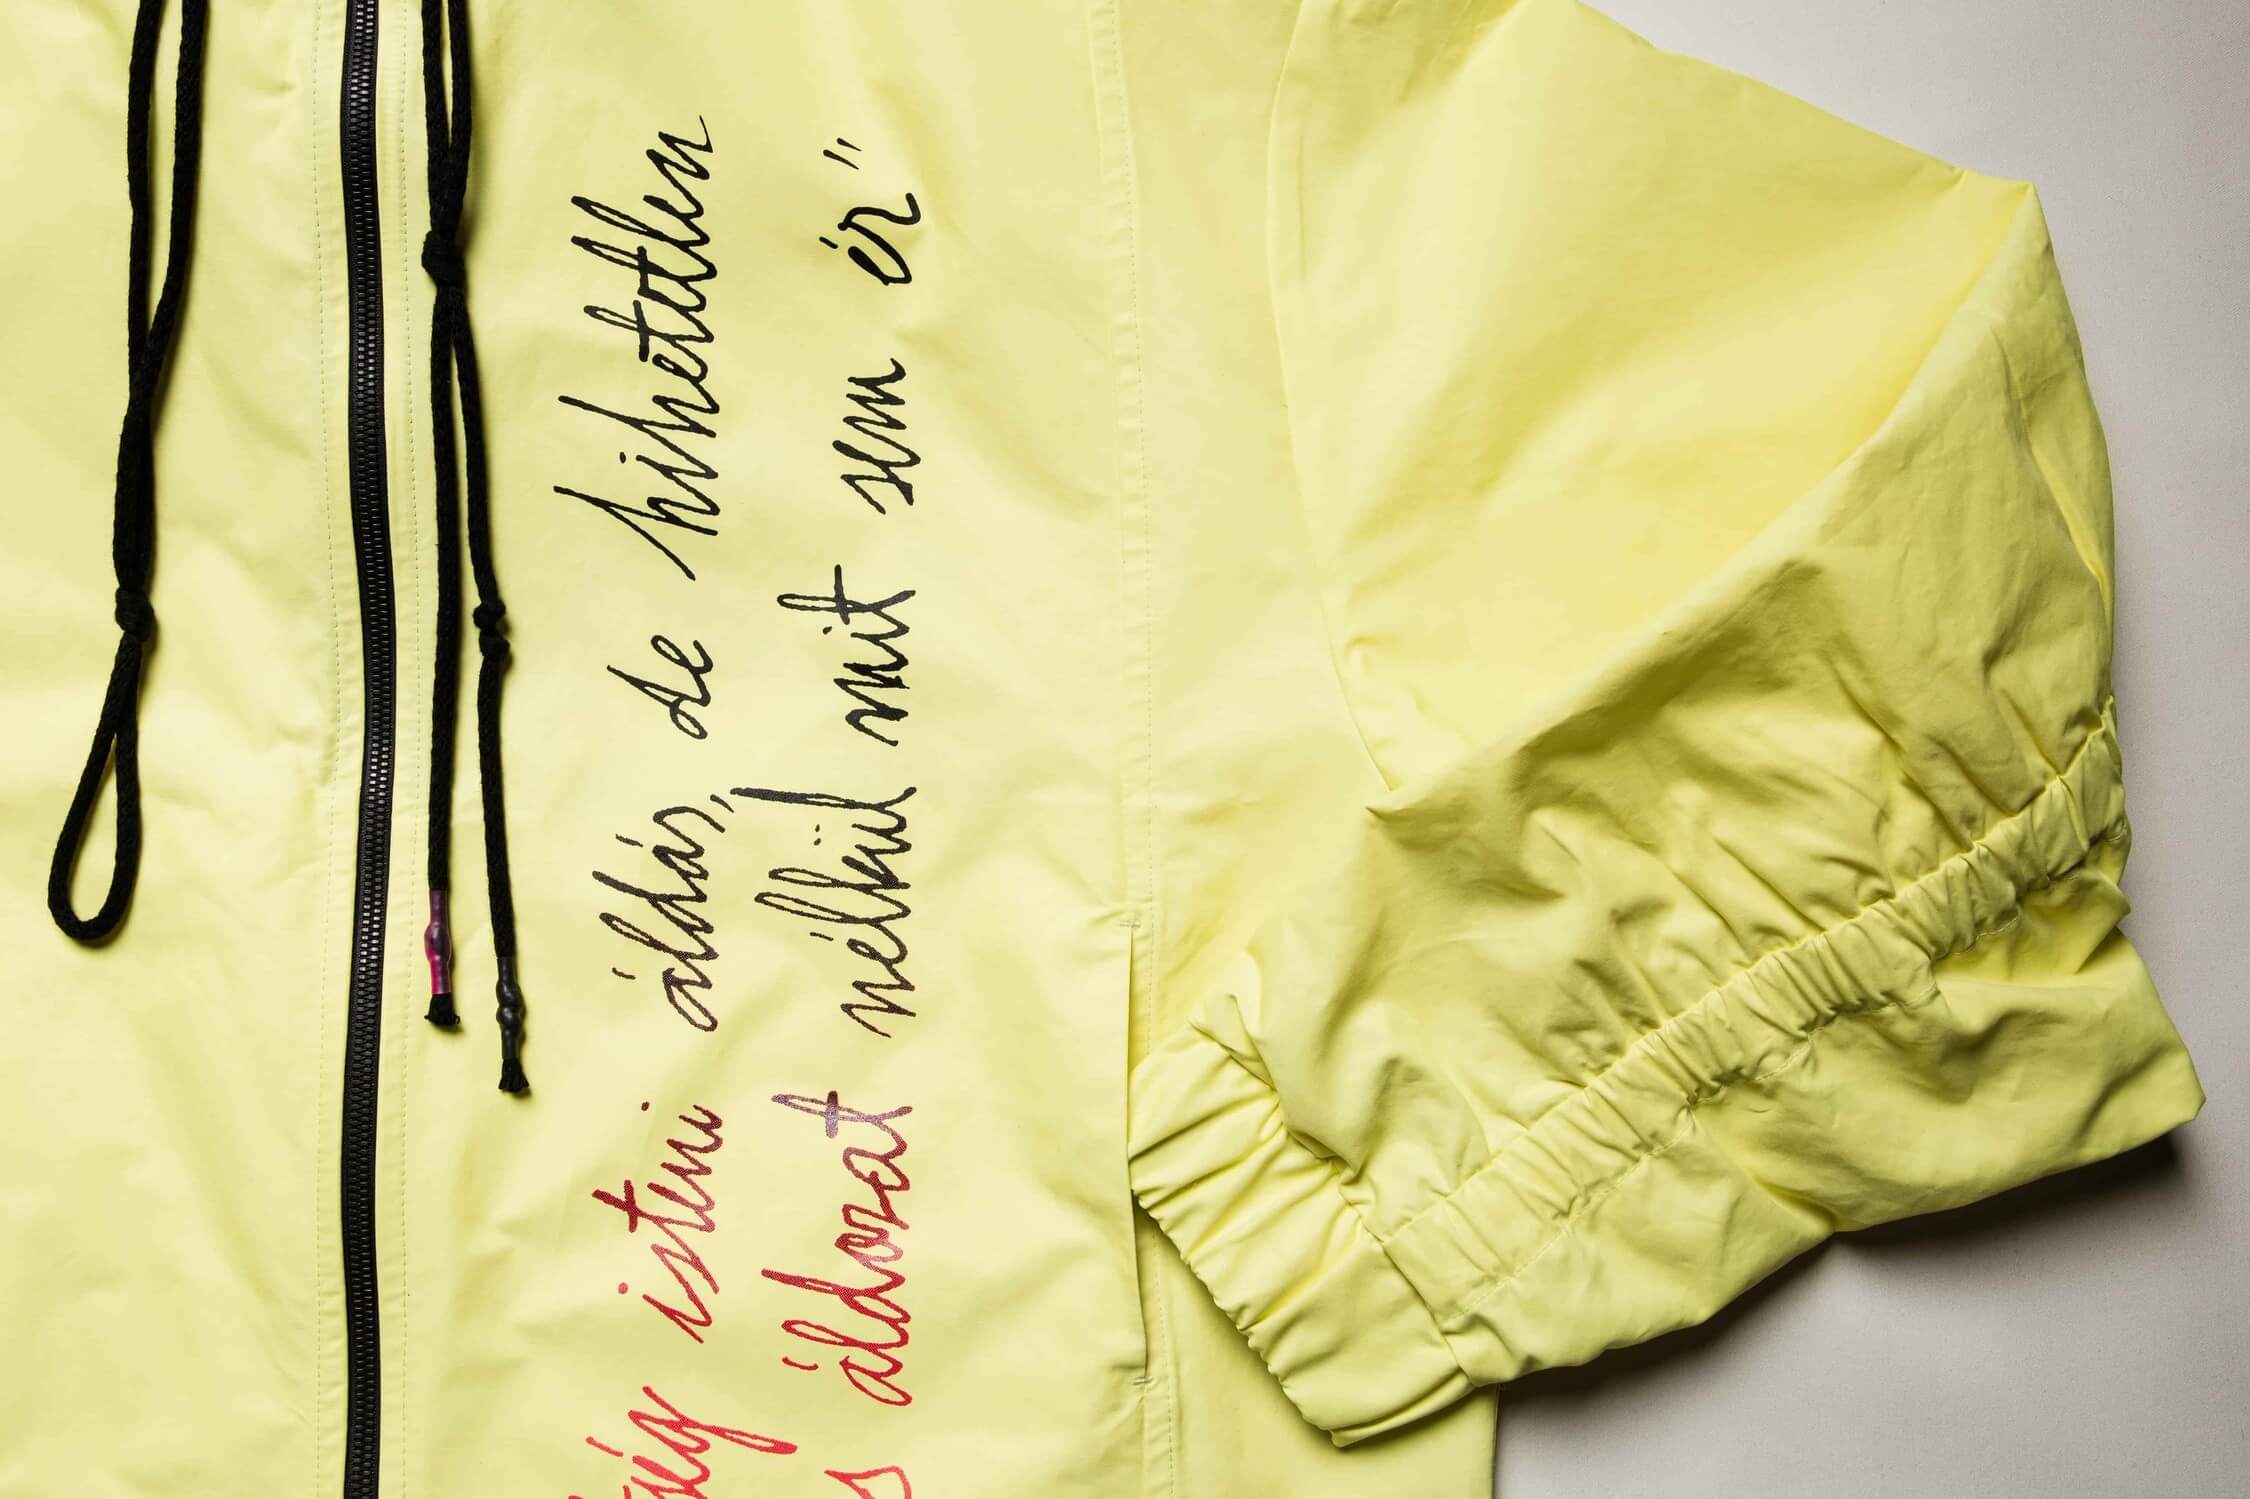 isteni áldás, de hihetetlen
áldozat nélkül mit sem ér"